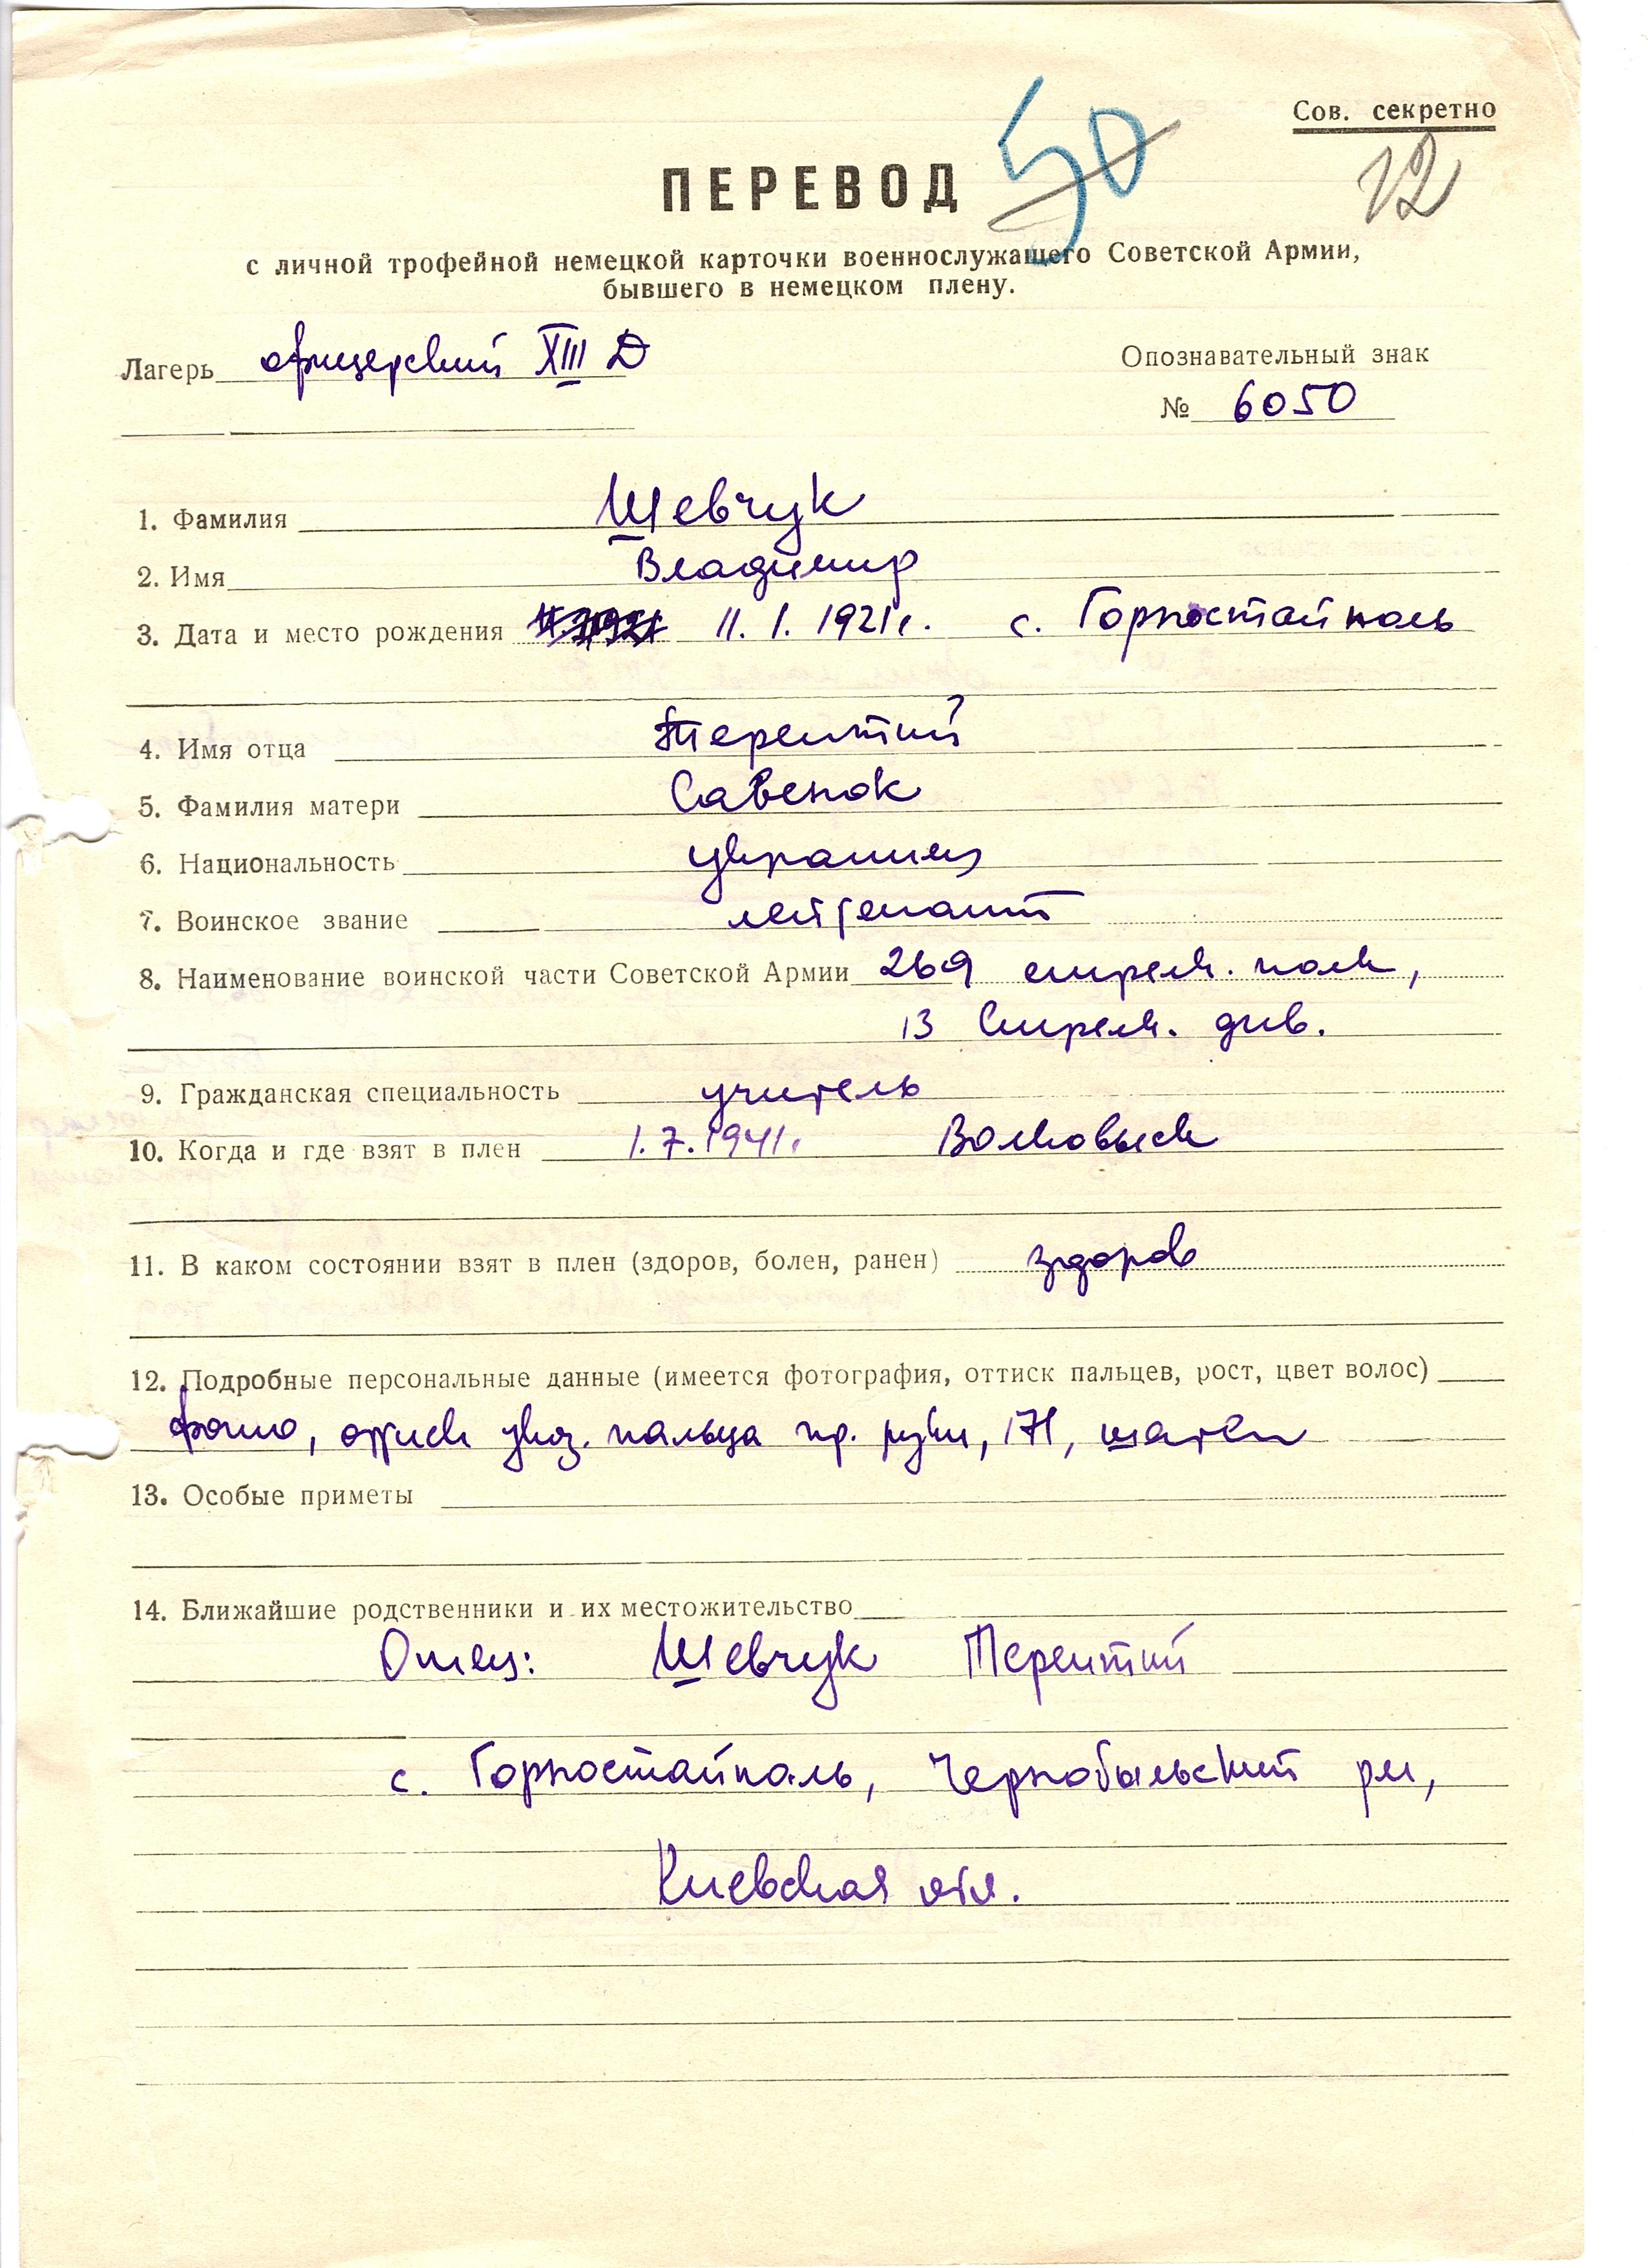 Сов. секретно
50
12
ПЕРЕВОД
с личной трофейной немецкой карточки военнослужащего Советской Армии,
бывшего в немецком плену.
Лагерь офицерский XIII Д
Опознавательный знак
№ 6050
1. Фамилия Шевчук
2. Имя Владимир
3. Дата и место рождения 11.1.1921г. с. Горностайполь
4. Имя отца Терентий
5. Фамилия матери Савенок
6. Национальность украинец
7. Воинское звание лейтенант
8. Наименование воинской части Советской Армии 269 стрелк. полк,
13 Стрелк. див.
9. Гражданская специальность учитель
10. Когда и где взят в плен 1.7.1941г. Волковыск
11. В каком состоянии взят в плен (здоров, болен, ранен) здоров
12. Подробные персональные данные (имеется фотография, оттиск пальцев, рост, цвет волос)
фото, оттиск указ. пальца пр. руки, 171, шатен
13. Особые приметы
14. Ближайшие родственники и их местожительство
Отец: Шевчук Терентий
с. Горностайполь, Чернобыльский рн,
Киевская обл.